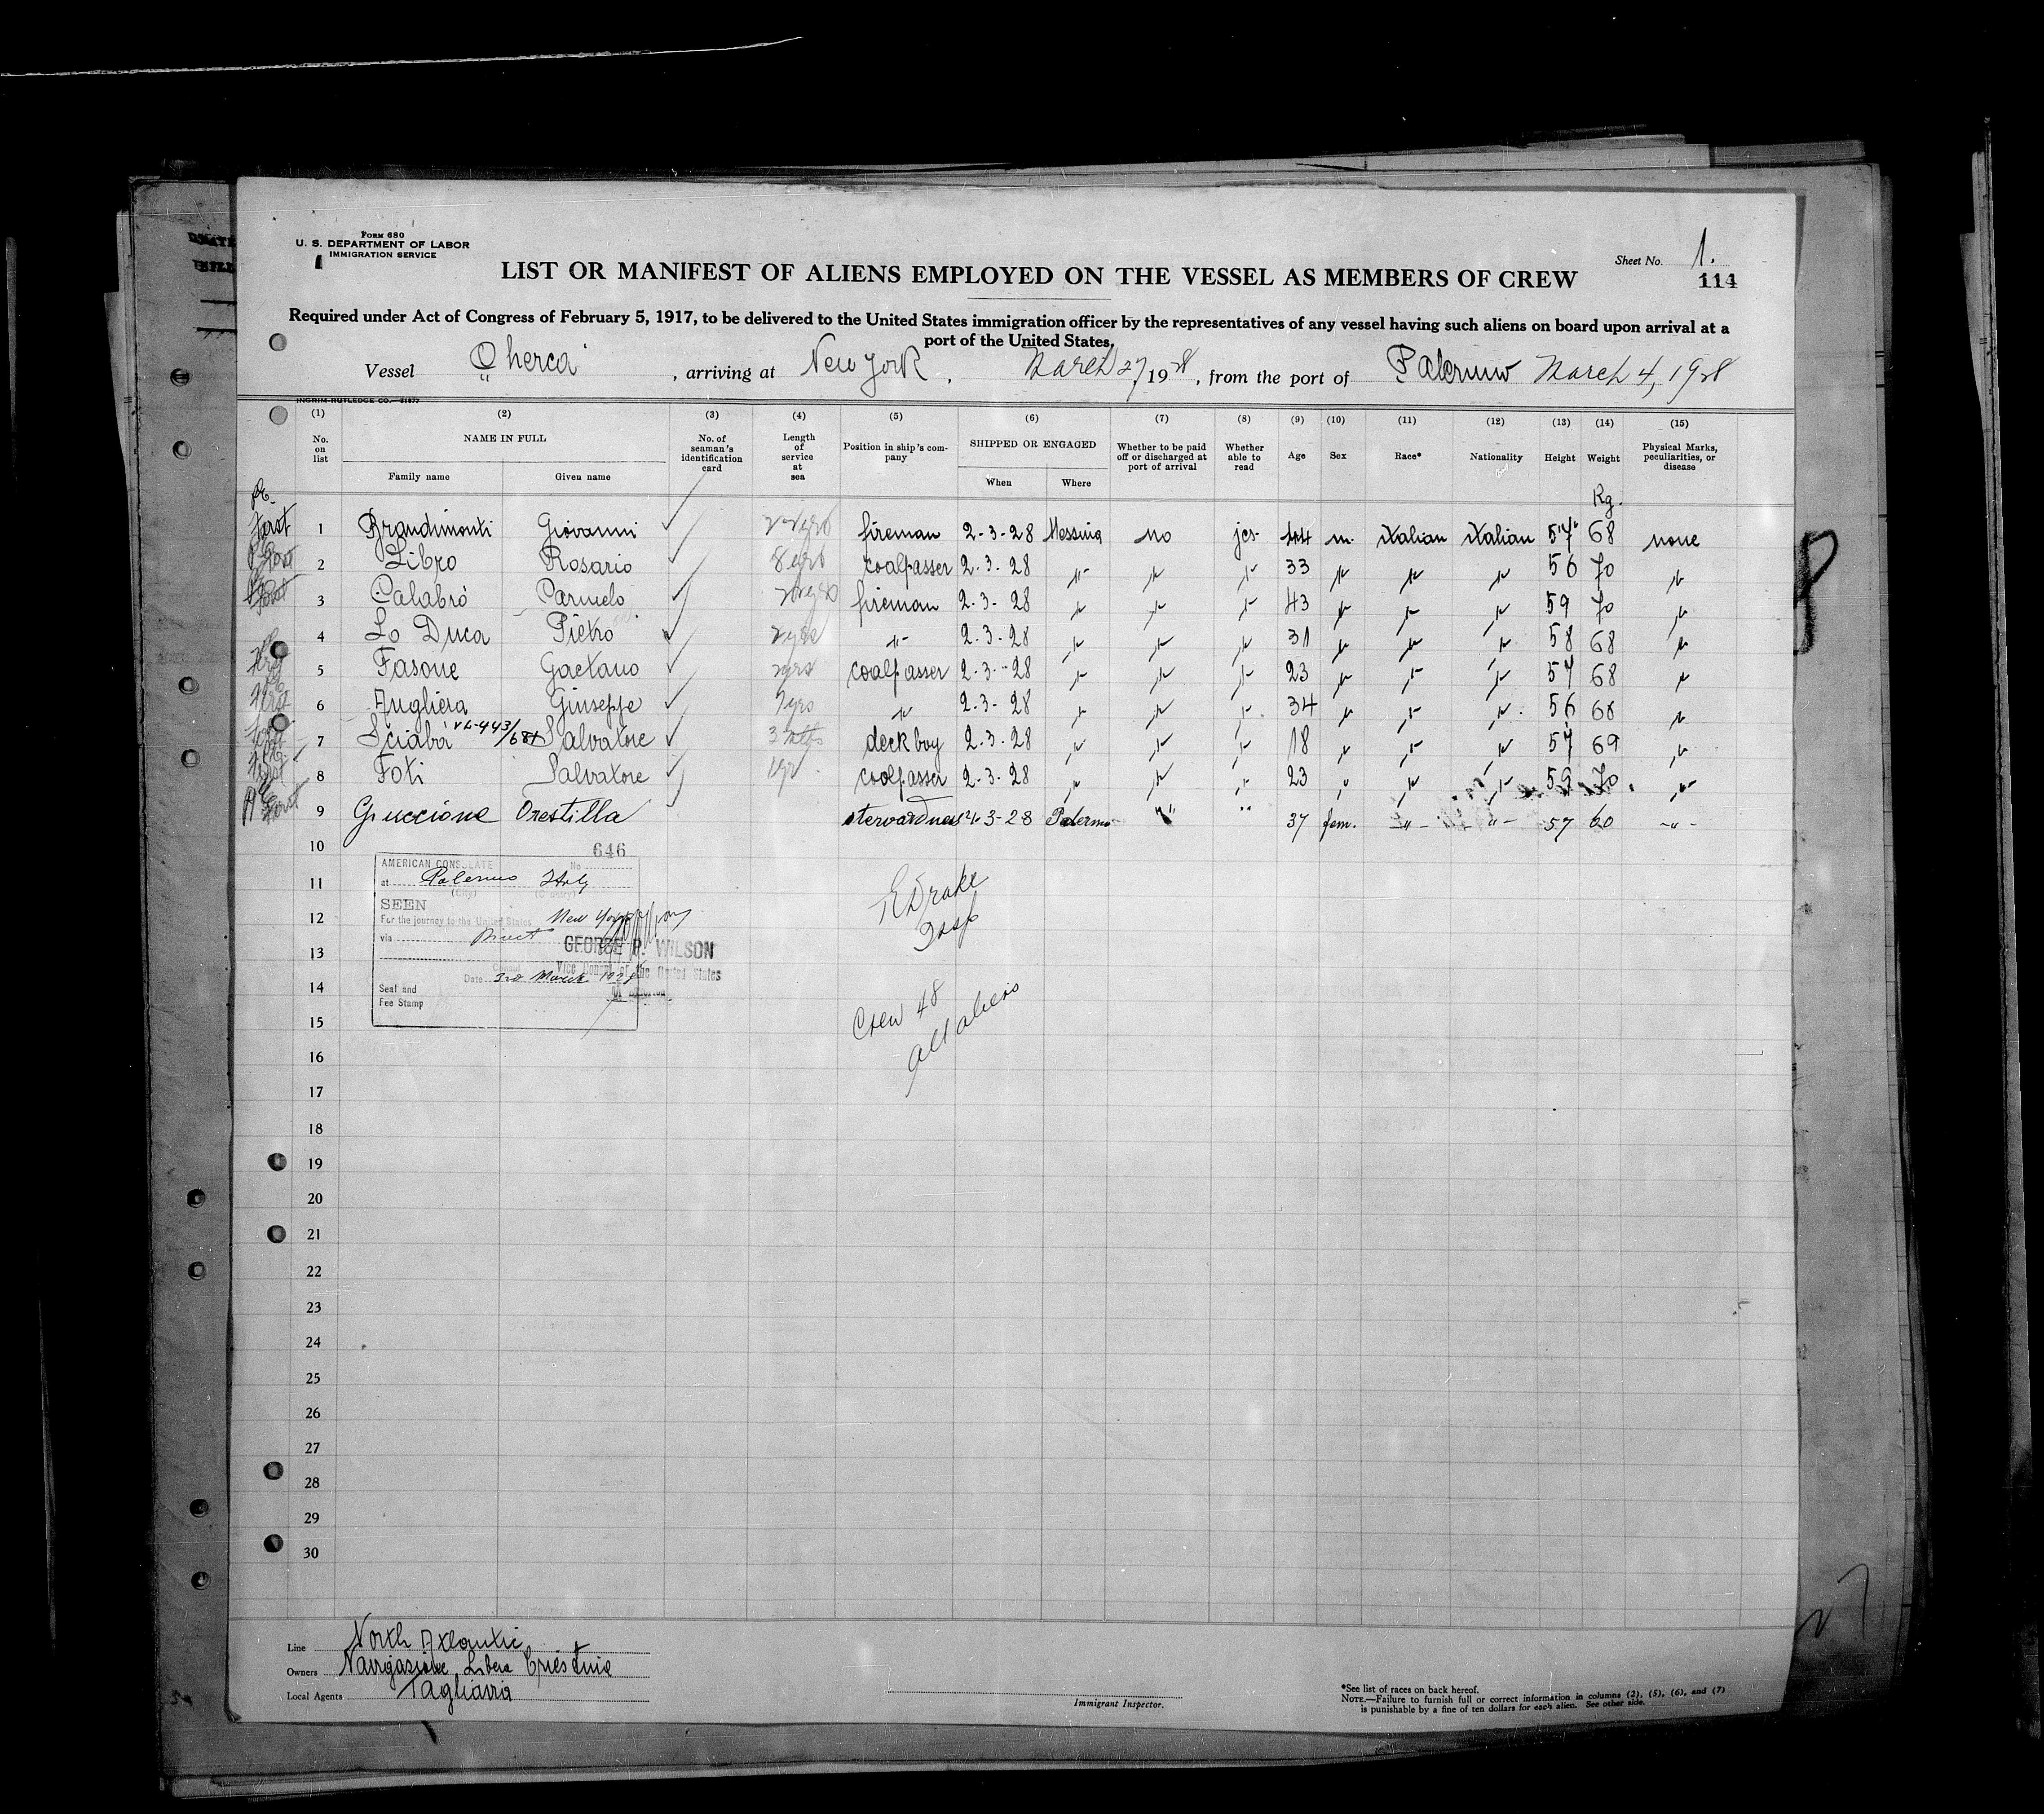 Form 680
U. S. DEPARTMENT OF LABOR
IMMIGRATION SERVICE
Sheet No. 1.
114
LIST OR MANIFEST OF ALIENS EMPLOYED ON THE VESSEL AS MEMBERS OF CREW
Required under Act of Congress of February 5, 1917, to be delivered to the United States immigration officer by the representatives of any vessel having such aliens on board upon arrival at a
port of the United States.
Vessel , arriving at New York , March 27 1928, from the port of Palermo March 4, 1928
INGRIM-RUTLEDGE CO.
(1) (2) (3) (4) (5) (6) (7) (8) (9) (10) (11) (12) (13) (14) (15)
No. on list NAME IN FULL Family name Given name No. of seaman's identification card Length of service at sea Position in ship's company SHIPPED OR ENGAGED When Where Whether to be paid off or discharged at port of arrival Whether able to read Age Sex Race* Nationality Height Weight Physical Marks, peculiarities, or disease
Kg.
1 Brandimonti Giovanni fireman 2-3-28 Messina no yes 44 m. italian italian 57 68 none
2 Libro Rosario 8 yrs coalpasser 2-3-28 " " " 33 " " " 56 70 "
3 Calabrò Carmelo fireman 2-3-28 " " " 43 " " " 59 70 "
4 Lo Duca Pietro 2 yrs " 2-3-28 " " " 31 " " " 58 68 "
5 Fasone Gaetano 2 yrs coalpasser 2-3-28 " " " 23 " " " 57 68 "
6 Augliera Giuseppe 7 yrs " 2-3-28 " " " 34 " " " 56 68 "
7 Sciabà Salvatore 3 mths deck boy 2-3-28 " " " 18 " " " 57 69 "
8 Foti Salvatore 1 yr coalpasser 2-3-28 " " " 23 " " " 59 70 "
9 Guccione Orestilla stewardness 4-3-28 Palermo " " 37 fem. " " 57 60 "
10
646
AMERICAN CONSULATE No.
11
at Palermo Italy
(City) (Country)
SEEN
12
For the journey to the United States New York
via Direct
GEORGE P. WILSON
13
Vice Consul of the United States
Date 3rd March 1928
of America
14
Seal and
Fee Stamp
E Drake
Insp
15
Crew 48
all aliens
16
17
18
19
20
21
22
23
24
25
26
27
28
29
30
Line North Atlantic
Owners Navigazione Libera Triestina
Local Agents Tagliavia
Immigrant Inspector.
*See list of races on back hereof.
NOTE.—Failure to furnish full or correct information in columns (2), (5), (6), and (7)
is punishable by a fine of ten dollars for each alien. See other side.